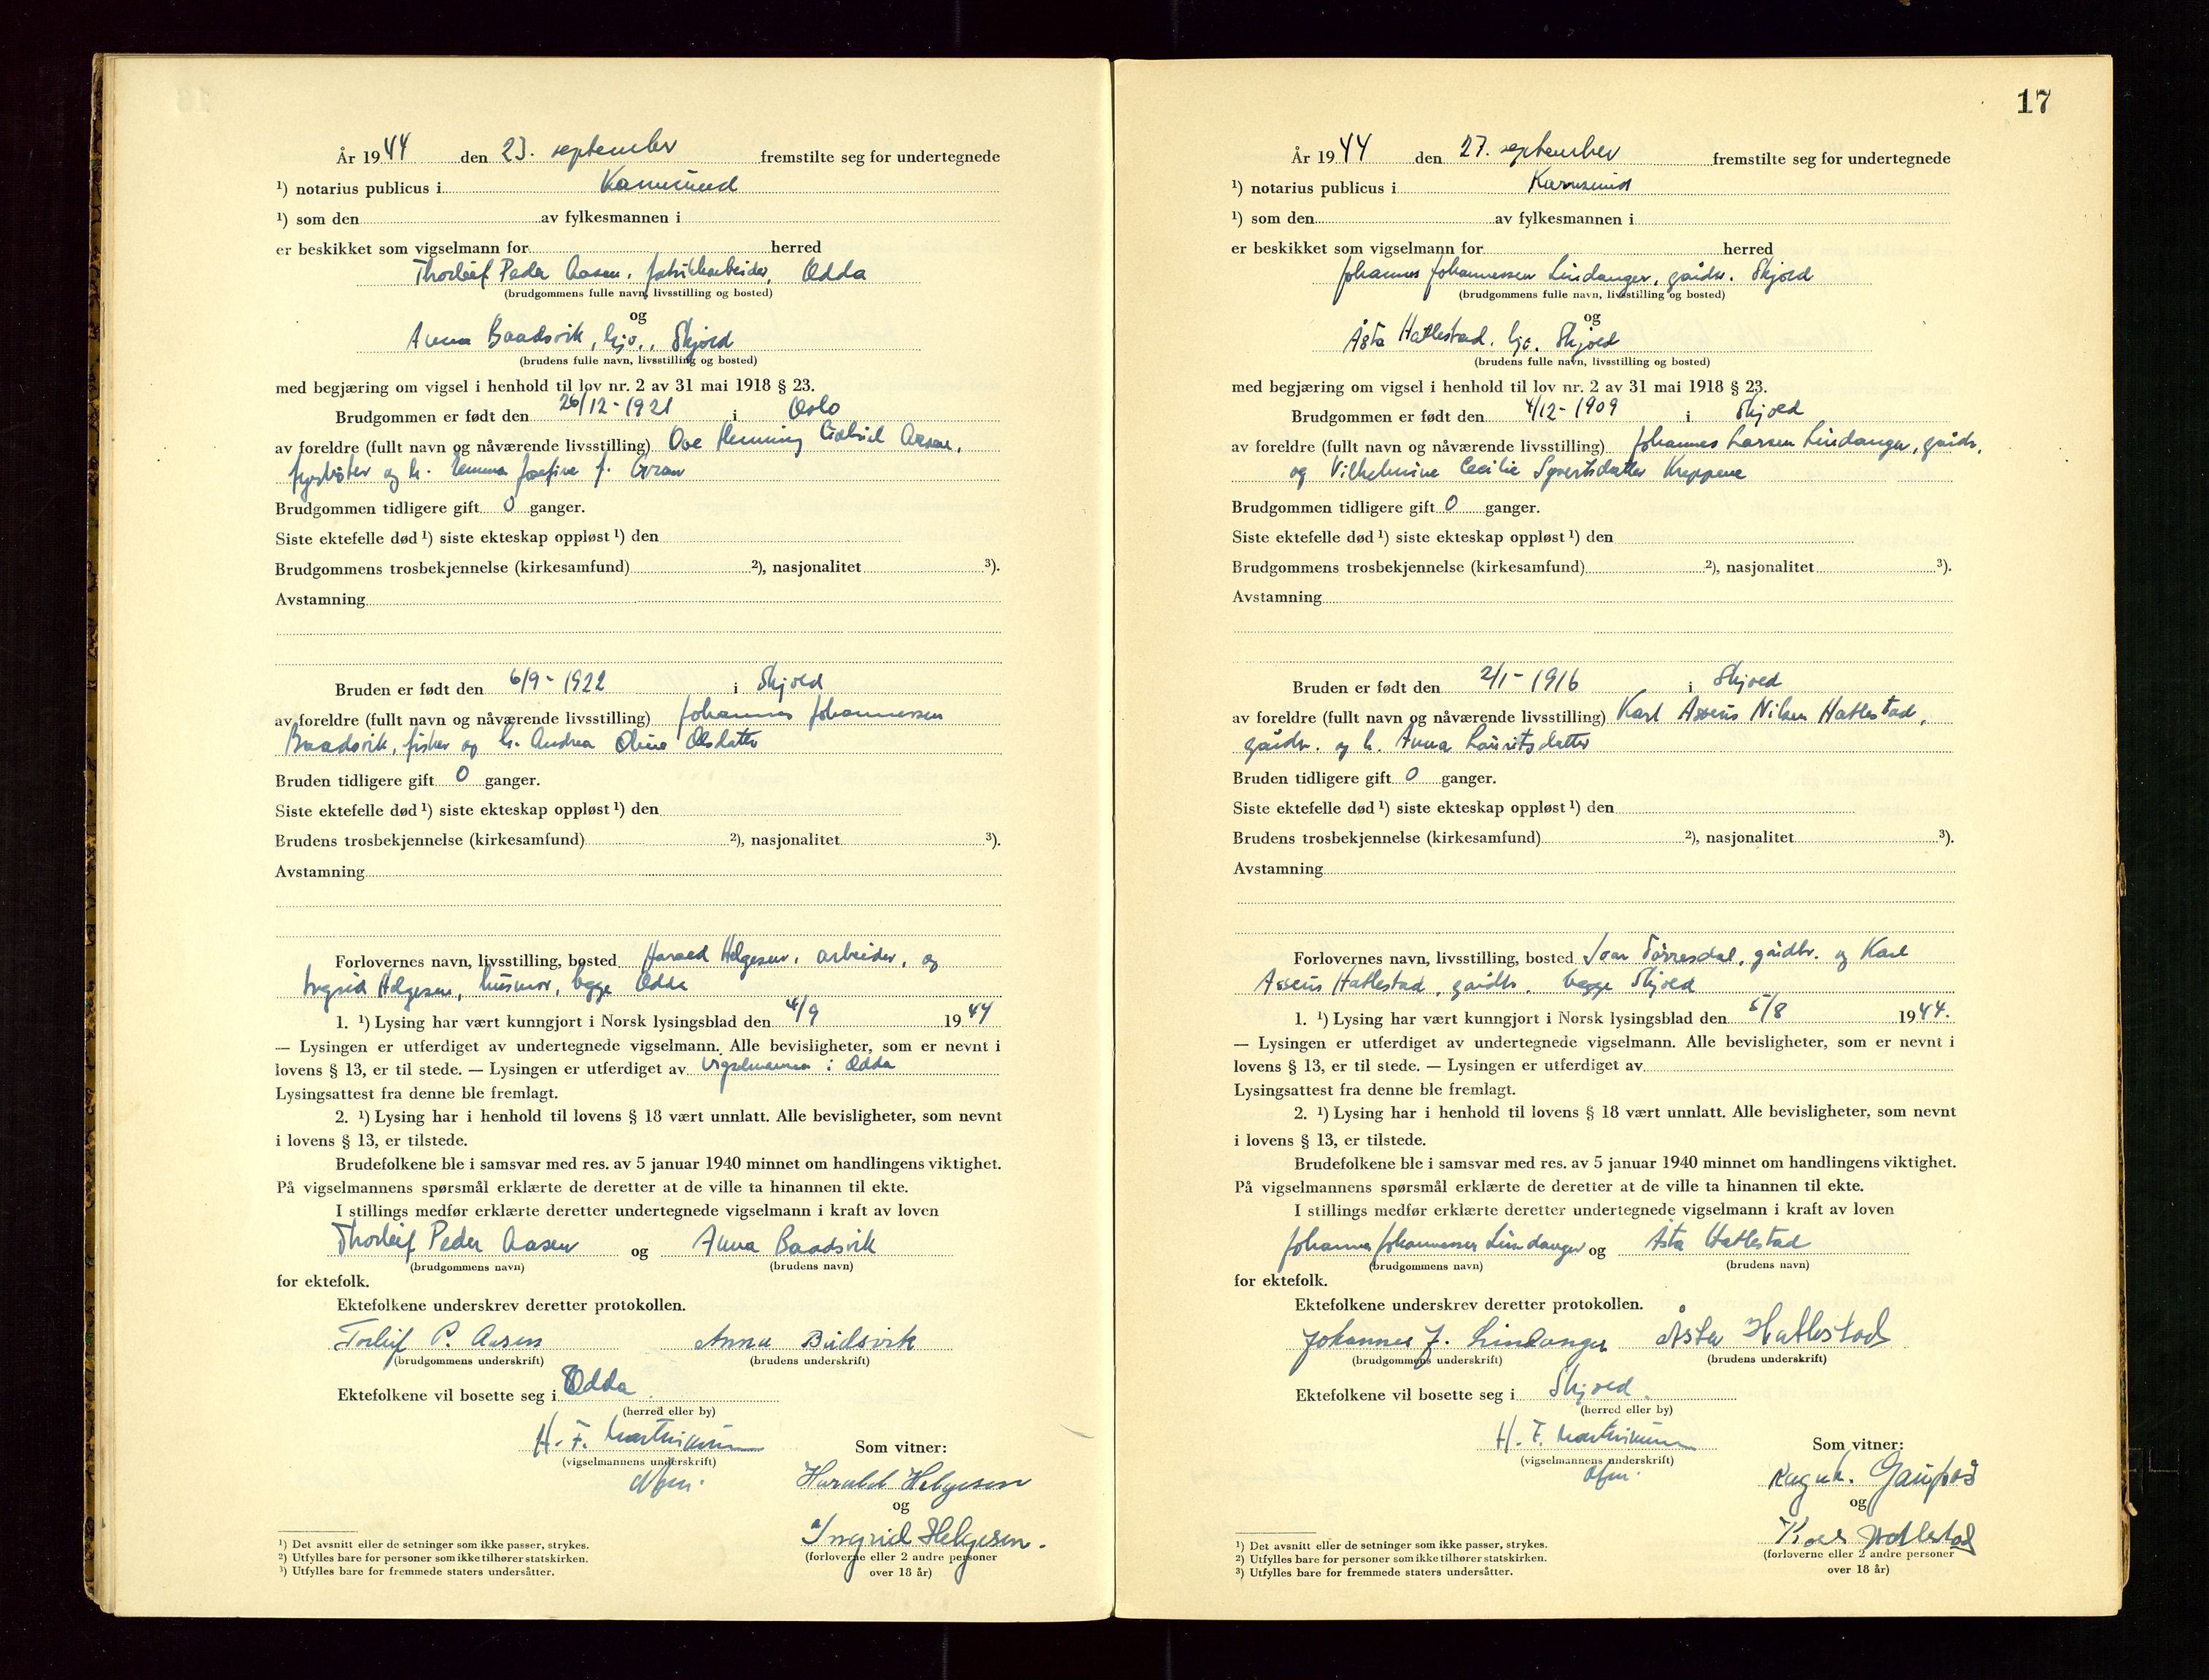 År 1944 den 23. september fremstilte seg for undertegnede
¹) notarius publicus i Karmsund
¹) som den av fylkesmannen i
er beskikket som vigselmann for herred
Thorleif Peder Aasen, fabrikkarbeider, Odda
(brudgommens fulle navn, livsstilling og bosted)
og
Anna Baadsvik, hjv., Skjold
(brudens fulle navn, livsstilling og bosted)
med begjæring om vigsel i henhold til lov nr. 2 av 31 mai 1918 § 23.
Brudgommen er født den 26/12-1921 i Oslo
av foreldre (fullt navn og nåværende livsstilling) Ove Henning Gabriel Aasen,
fyrbøter og h. Emma Josefine f. Gran
Brudgommen tidligere gift 0 ganger.
Siste ektefelle død ¹) siste ekteskap oppløst ¹) den
Brudgommens trosbekjennelse (kirkesamfund) ²), nasjonalitet ³).
Avstamning
Bruden er født den 6/9-1922 i Skjold
av foreldre (fullt navn og nåværende livsstilling) Johannes Johannessen
Baadsvik, fisker og h. Andrea Oline Olsdatter
Bruden tidligere gift 0 ganger.
Siste ektefelle død ¹) siste ekteskap oppløst ¹) den
Brudens trosbekjennelse (kirkesamfund) ²), nasjonalitet ³).
Avstamning
Forlovernes navn, livsstilling, bosted Harald Helgesen, arbeider, og
Ingrid Helgesen, husmor, begge Odda
1. ¹) Lysing har vært kunngjort i Norsk lysingsblad den 4/9 1944
— Lysingen er utferdiget av undertegnede vigselmann. Alle bevisligheter, som er nevnt i
lovens § 13, er til stede. — Lysingen er utferdiget av vigselmannen i Odda
Lysingsattest fra denne ble fremlagt.
2. ¹) Lysing har i henhold til lovens § 18 vært unnlatt. Alle bevisligheter, som nevnt
i lovens § 13, er tilstede.
Brudefolkene ble i samsvar med res. av 5 januar 1940 minnet om handlingens viktighet.
På vigselmannens spørsmål erklærte de deretter at de ville ta hinannen til ekte.
I stillings medfør erklærte deretter undertegnede vigselmann i kraft av loven
Thorleif Peder Aasen og Anna Baadsvik
(brudgommens navn) (brudens navn)
for ektefolk.
Ektefolkene underskrev deretter protokollen.
Torleif P. Aasen Anna Bådsvik
(brudgommens underskrift) (brudens underskrift)
Ektefolkene vil bosette seg i Odda.
(herred eller by)
H. F. Marthinsen
(vigselmannens underskrift)
Som vitner:
Harald Helgesen
og
Ingrid Helgesen.
(forloverne eller 2 andre personer
over 18 år)
¹) Det avsnitt eller de setninger som ikke passer, strykes.
²) Utfylles bare for personer som ikke tilhører statskirken.
³) Utfylles bare for fremmede staters undersåtter.
17
År 1944 den 27. september fremstilte seg for undertegnede
¹) notarius publicus i Karmsund
¹) som den av fylkesmannen i
er beskikket som vigselmann for herred
Johannes Johannessen Lindanger, gårdbr. Skjold
(brudgommens fulle navn, livsstilling og bosted)
og
Åsta Hatlestad, hjv. Skjold
(brudens fulle navn, livsstilling og bosted)
med begjæring om vigsel i henhold til lov nr. 2 av 31 mai 1918 § 23.
Brudgommen er født den 4/12-1909 i Skjold
av foreldre (fullt navn og nåværende livsstilling) Johannes Larsen Lindanger, gårdr,
og Vilhelmine Cecilie Syvertsdatter Kreppene
Brudgommen tidligere gift 0 ganger.
Siste ektefelle død ¹) siste ekteskap oppløst ¹) den
Brudgommens trosbekjennelse (kirkesamfund) ²), nasjonalitet ³).
Avstamning
Bruden er født den 2/1-1916 i Skjold
av foreldre (fullt navn og nåværende livsstilling) Karl Asseus Nilsen Hatlestad,
gårdbr. og h. Anna Lauritsdatter
Bruden tidligere gift 0 ganger.
Siste ektefelle død ¹) siste ekteskap oppløst ¹) den
Brudens trosbekjennelse (kirkesamfund) ²), nasjonalitet ³).
Avstamning
Forlovernes navn, livsstilling, bosted Ivar Tørresdal, gårdbr. og Karl
Asseus Hatlestad, gårdbr. begge Skjold
1. ¹) Lysing har vært kunngjort i Norsk lysingsblad den 5/8 1944.
— Lysingen er utferdiget av undertegnede vigselmann. Alle bevisligheter, som er nevnt i
lovens § 13, er til stede. — Lysingen er utferdiget av
Lysingsattest fra denne ble fremlagt.
2. ¹) Lysing har i henhold til lovens § 18 vært unnlatt. Alle bevisligheter, som nevnt
i lovens § 13, er tilstede.
Brudefolkene ble i samsvar med res. av 5 januar 1940 minnet om handlingens viktighet.
På vigselmannens spørsmål erklærte de deretter at de ville ta hinannen til ekte.
I stillings medfør erklærte deretter undertegnede vigselmann i kraft av loven
Johannes Johannessen Lindanger og Åsta Hatlestad
(brudgommens navn) (brudens navn)
for ektefolk.
Ektefolkene underskrev deretter protokollen.
Johannes J. Lindanger Åsta Hatlestad
(brudgommens underskrift) (brudens underskrift)
Ektefolkene vil bosette seg i Skjold.
(herred eller by)
H. F. Marthinsen
(vigselmannens underskrift)
Som vitner:
Ragnh. Gaupås
og
Karl Hatlestad
(forloverne eller 2 andre personer
over 18 år)
¹) Det avsnitt eller de setninger som ikke passer, strykes.
²) Utfylles bare for personer som ikke tilhører statskirken.
³) Utfylles bare for fremmede staters undersåtter.